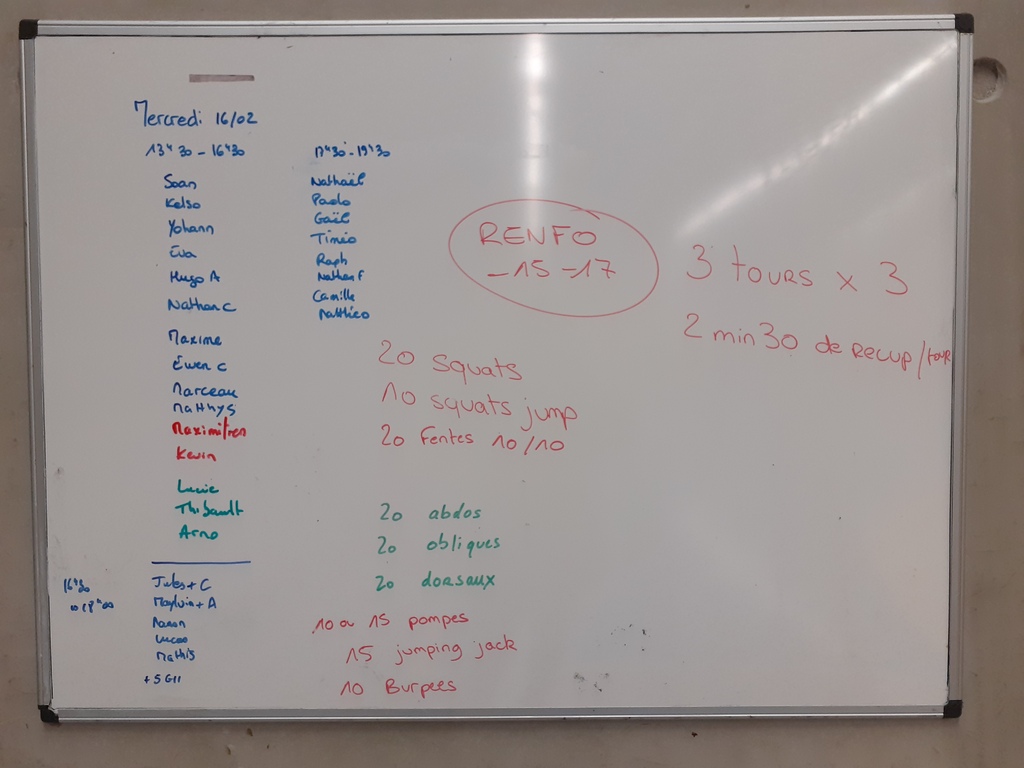 Mercredi 16/02
13H30 - 16H30
Soan
Kelso
Yohann
Eva
Hugo A
Nathan C
Maxime
Ewen C
Marceau
Matthys
Maximilien
Kevin
Lucie
Thibault
Arno
16H30
18H00
Jules + C
+ A
Aaron
Lucas
Mathis
17H30 - 19H30
Nathaël
Paolo
Gaël
Timéo
Raph
Nathan F
Camille
Matthéo
RENFO
-15 -17
3 tours x 3
2 min 30 de recup/tour
20 squats
10 squats jump
20 Fentes 10/10
20 abdos
20 obliques
20 dorsaux
10 ou 15 pompes
15 jumping jack
10 Burpees